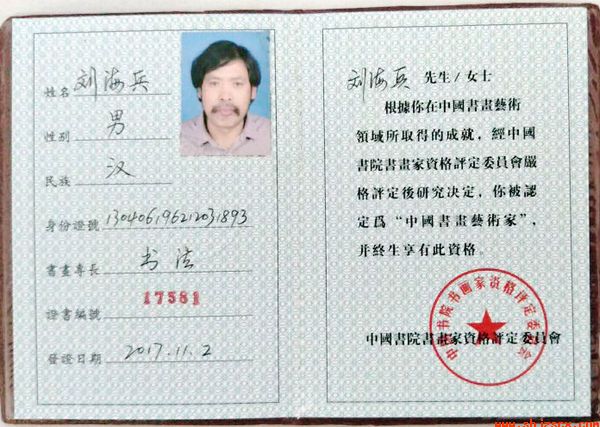 姓名 刘海兵
性别 男
民族 汉
身份證號 130406196212031893
書畫專長 书法
證書編號 17581
發證日期 2017.11.2
刘海兵 先生/女士
根據你在中國書畫藝術
領域所取得的成就，經中國
書院書畫家資格評定委員會嚴
格評定後研究決定，你被認
定爲“中國書畫藝術家”，
并終生享有此資格。
中国书院书画家资格评定委员会
中國書院書畫家資格評定委員會